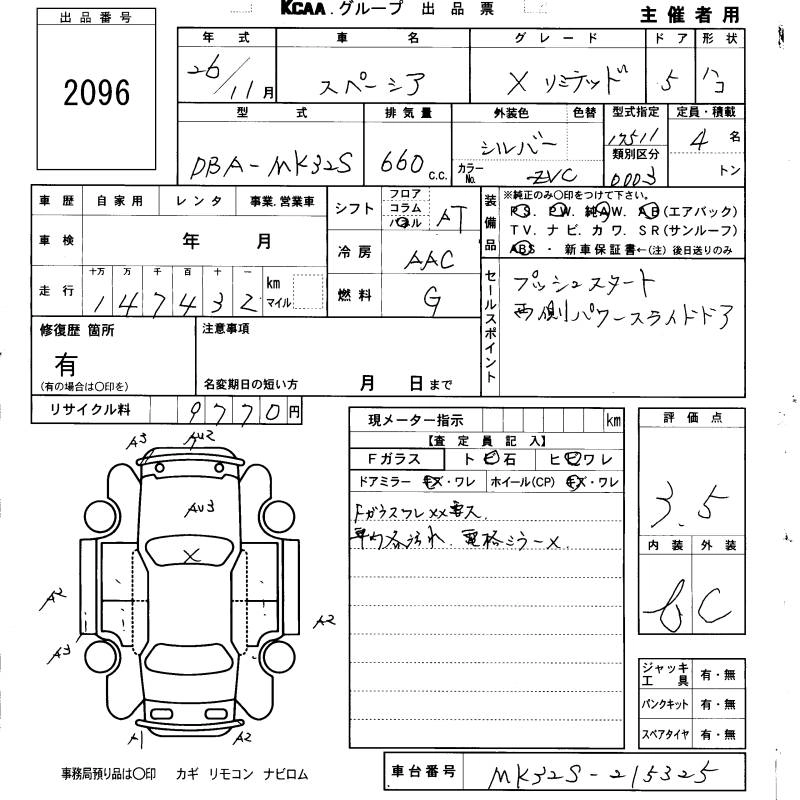 KCAA.グループ 出品票
主催者用
出品番号
2096
年式 車名 グレード ドア 形状
26/11月 スペーシア X リミテッド 5 ハコ
型式 排気量 外装色 色替 型式指定 定員・積載
DBA-MK32S 660 C.C. シルバー 17511 4 名
カラーNo. ZVC 類別区分 0003 トン
車歴 自家用 レンタ 事業.営業車
車検 年 月
走行 十万 万 千 百 十 一 km マイル
1 4 7 4 3 2
シフト フロア コラム パネル AT
冷房 AAC
燃料 G
装備品
※純正のみ○印をつけて下さい。
PS. PW. 純AW. AB(エアバック)
TV. ナビ. カワ. SR(サンルーフ)
ABS・新車保証書←(注)後日送りのみ
セールスポイント
プッシュスタート
両側パワースライドドア
修復歴 箇所
有
(有の場合は○印を)
注意事項
名変期日の短い方 月 日まで
リサイクル料 9770円
現メーター指示 km
【査定員記入】
Fガラス トビ石 ヒビワレ
ドアミラー キズ・ワレ ホイール(CP) キズ・ワレ
Fガラスワレxx要ス.
電格ミラーX.
評価点
3.5
内装 外装
C
ジャッキ工具 有・無
パンクキット 有・無
スペアタイヤ 有・無
A3 AU2
AU3
X
A2
A3
A2
A1 A2
事務局預り品は○印 カギ リモコン ナビロム
車台番号 MK32S-215325